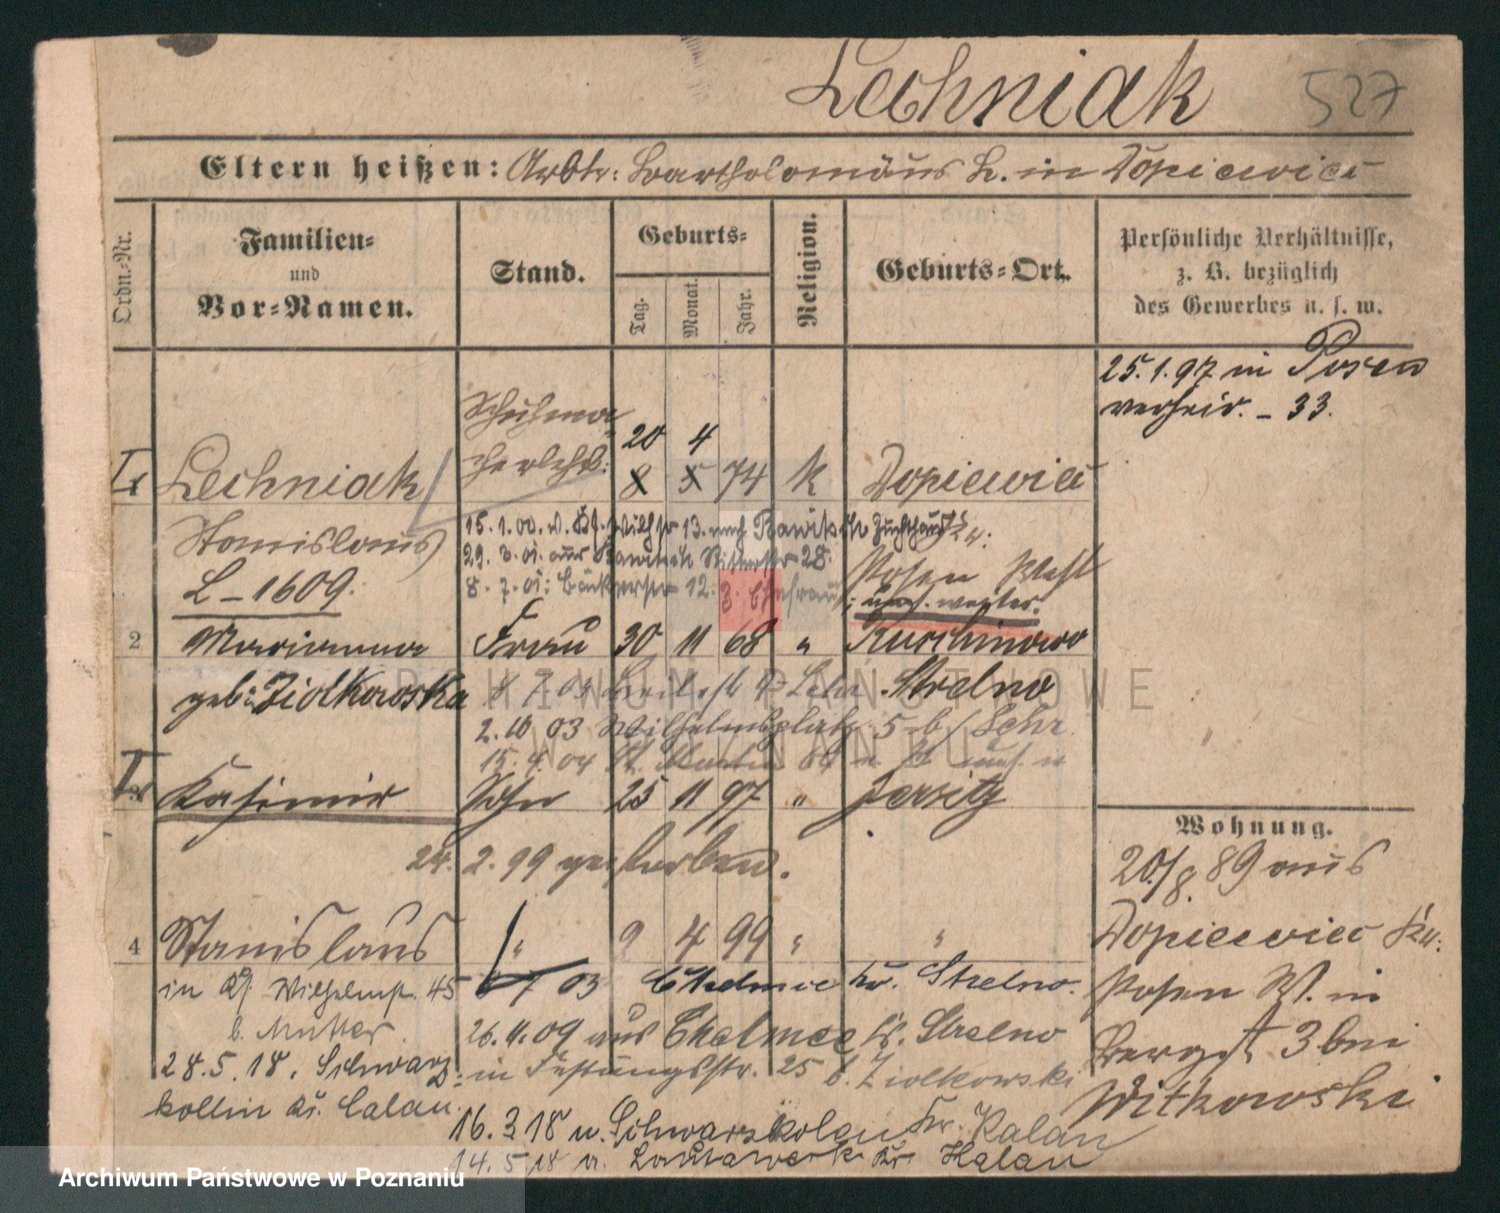 Lechniak 527
Eltern heißen: Arbtr: Bartholomäus L. in Dopiewiec
Ordn.-Nr.
Familien- und Vor-Namen.
Stand.
Geburts-
Tag.
Monat.
Jahr.
Religion.
Geburts-Ort.
Persönliche Verhältnisse,
z. B. bezüglich
des Gewerbes u. s. w.
25.1.97 in Posen
verheir. - 33.
Schuhma-
20 4
Lechniak 8 5 74 k Dopiewiec
Stanislaus
15.1.00. 13. nach Rawitsch Zuchthaus
29. 3. 01. aus Rawitsch Ritterstr 28.
L - 1609. 8. 7. 01: Bäckerstr 12.
Posen West
2 Marianna Frau 30 11 68 " Kuschinowo
geb: Ziolkowska Strelno
2. 10 03 Wilhelmsplatz 5 b/ Lehr.
15. 4. 04 St. Martin
Kasimir Sohn 25 11 97 " Jersitz
24. 2. 99 gestorben.
Wohnung.
20/8. 89 aus
Dopiewiec Kr:
Posen W. in
Bergst 3 bei
Witkowski
4 Stanislaus " 9 4 99 " "
in Wilhelmst. 45
7 03 Chelmce kr. Strelno.
b. Mutter
26. 11. 09 aus Chelmce Kr. Strelno
28. 5. 18. Schwarz
in Festungsstr. 25 b. Ziolkowski
kollm Kr. Calau.
16. 3 18 n. Schwarzkolen Kr. Kalau
14. 5 18 n. Lautawerk Kr Kalau
ARCHIWUM PAŃSTWOWE
W POZNANIU
Archiwum Państwowe w Poznaniu